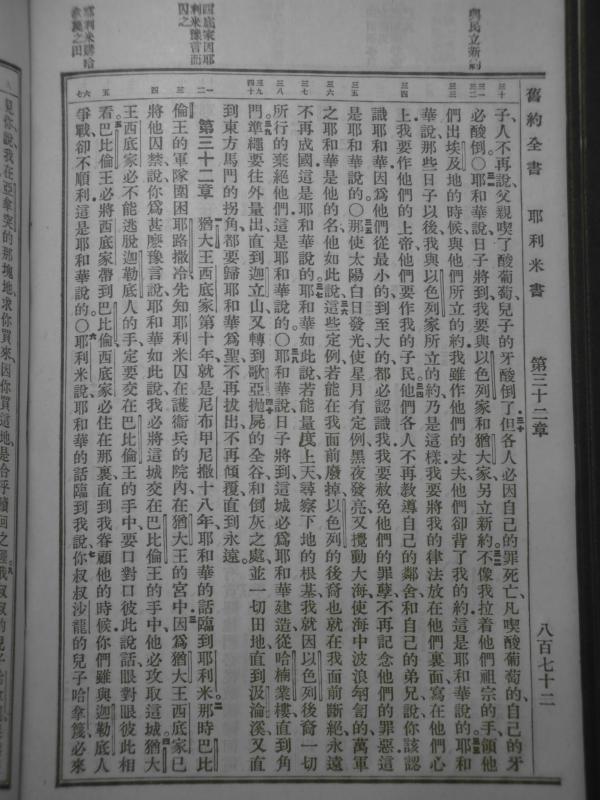 舊約全書　耶利米書　第三十二章　八百七十二
與民立新約
子人不再說、父親喫了酸葡萄、兒子的牙酸倒了但各人必因自己的罪死亡、凡喫酸葡萄的、自己的牙
必酸倒○耶和華說、日子將到、我要與以色列家和猶大家、另立新約不像我拉着他們祖宗的手、領他
們出埃及地的時候、與他們所立的約我雖作他們的丈夫、他們卻背了我的約這是耶和華說的耶和
華說、那些日子以後、我與以色列家所立的約、乃是這樣我要將我的律法放在他們裏面、寫在他們心
上我要作他們的上帝、他們要作我的子民他們各人不再教導自己的鄰舍、和自己的弟兄、說、你該認
識耶和華因為他們從最小的、到至大的、都必認識我我要赦免他們的罪孽、不再記念他們的罪惡這
是耶和華說的。○那使太陽白日發光、使星月有定例、黑夜發亮、又攪動大海、使海中波浪匉訇的、萬軍
之耶和華是他的名、他如此說這些定例、若能在我面前廢掉、以色列的後裔、也就在我面前斷絕、永遠
不再成國這是耶和華說的耶和華如此說、若能量度上天、尋察下地的根基、我就因以色列後裔一切
所行的、棄絕他們這是耶和華說的○耶和華說、日子將到、這城必為耶和華建造從哈楠業樓、直到角
門準繩要往外量出、直到迦立山、又轉到歌亞拋屍的全谷、和倒灰之處並一切田地、直到汲淪溪、又直
到東方馬門的拐角、都要歸耶和華為聖不再拔出、不再傾覆、直到永遠。
第三十二章　猶大王西底家第十年、就是尼布甲尼撒十八年、耶和華的話臨到耶利米那時巴比
西底家因耶利米豫言而囚之
倫王的軍隊圍困耶路撒冷先知耶利米囚在護衛兵的院內、在猶大王的宮中因為猶大王西底家已
將他囚禁、說、你為甚麼豫言說、耶和華如此說、我必將這城交在巴比倫王的手中、他必攻取這城猶大
王西底家必不能逃脫迦勒底人的手、定要交在巴比倫王的手中、要口對口彼此說話、眼對眼彼此相
看巴比倫王必將西底家帶到巴比倫、西底家必住在那裏、直到我眷顧他的時候、你們雖與迦勒底人
爭戰、卻不順利這是耶和華說的○耶利米說、耶和華的話臨到我說、你叔叔沙龍的兒子哈拿篾必來
耶利米購哈拿篾之田
見你、說、我在亞拿突的那塊地、求你買來、因你買這地是合乎贖回之理